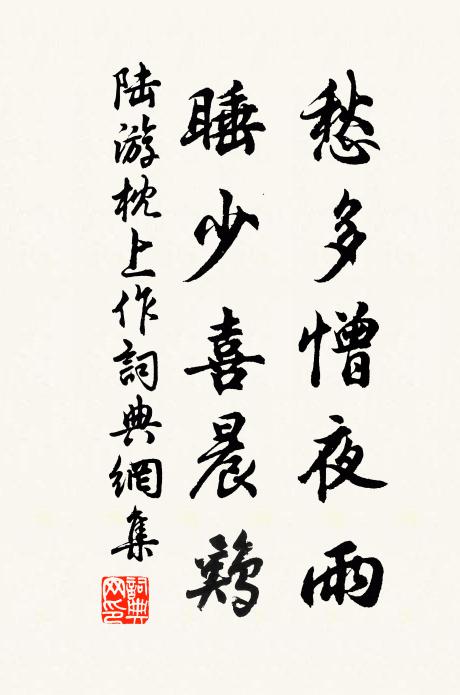 愁多憎夜雨
睡少喜晨鷄
陸游枕上作詞典網集
詞典網印